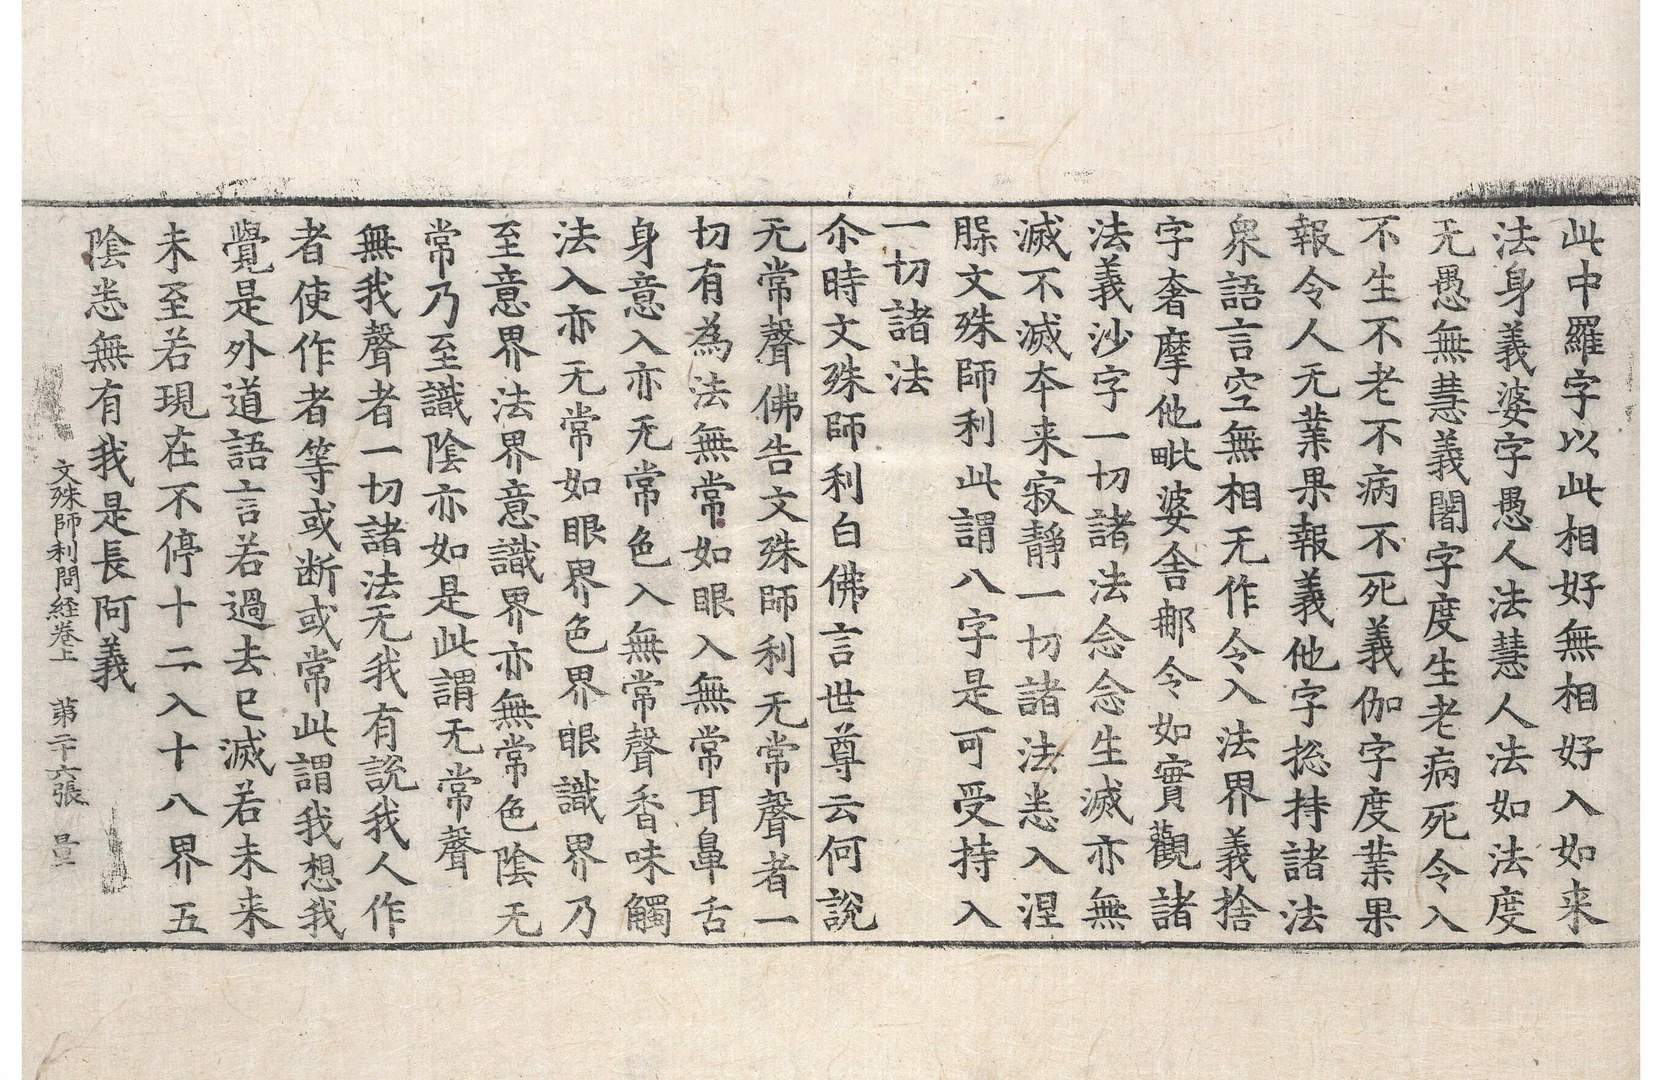 此中羅字以此相好無相好入如来
法身義婆字愚人法慧人法如法度
无愚無慧義闍字度生老病死令入
不生不老不病不死義伽字度業果
報令人无業果報義他字捴持諸法
衆語言空無相无作令入法界義捨
字奢摩他毗婆舍那令如實觀諸
法義沙字一切諸法念念生滅亦無
滅不滅夲来寂靜一切諸法悉入涅
𦨖文殊師利此謂八字是可受持入
一切諸法
尒時文殊師利白佛言世尊云何說
无常聲佛告文殊師利无常聲者一
切有為法無常如眼入無常耳鼻舌
身意入亦无常色入無常聲香味觸
法入亦无常如眼界色界眼識界乃
至意界法界意識界亦無常色陰无
常乃至識陰亦如是此謂无常聲
無我聲者一切諸法无我有說我人作
者使作者等或断或常此謂我想我
覺是外道語言若過去已滅若未来
未至若現在不停十二入十八界五
陰悉無有我是長阿義
文殊師利問経卷上　第二十六張　量